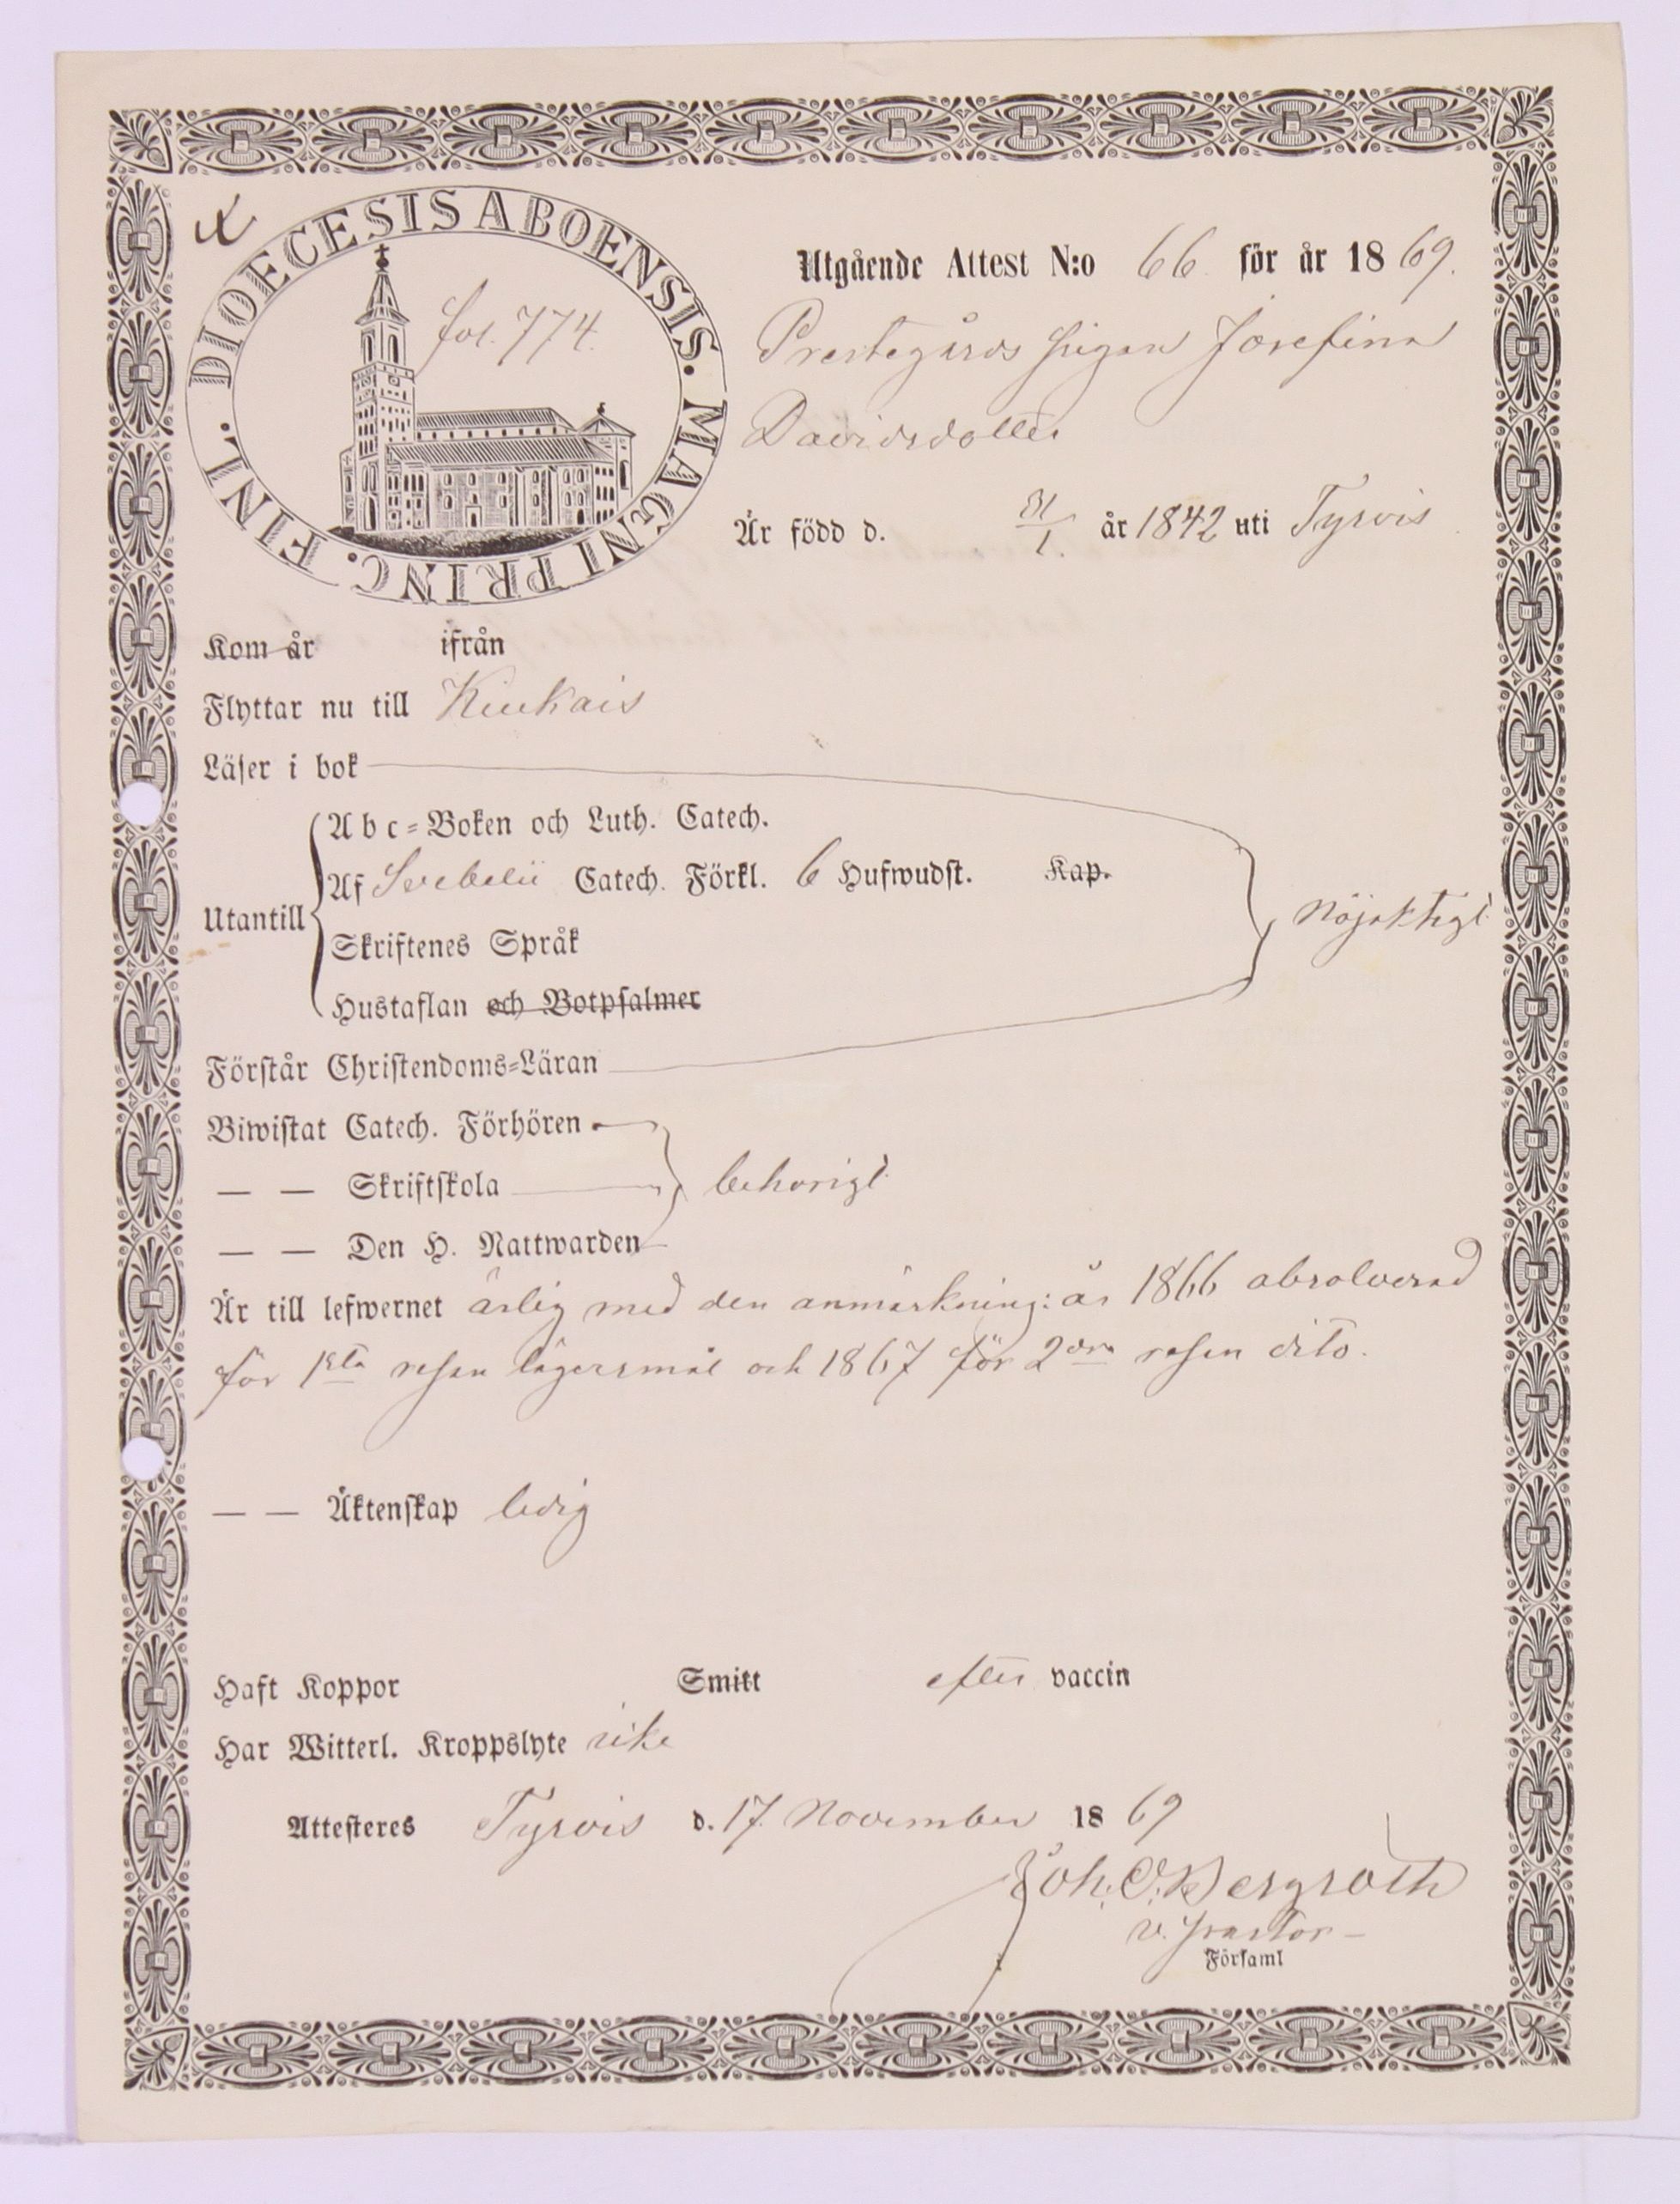 DIOECESIS ABOENSIS. MAGNI PRINC. FINL.
fol. 774.
Utgående Attest N:o 66 för år 1869.
Prestegårds pigan Josefina
Davidsdotter
Är född d. 31/1. år 1842 uti Tyrvis
Kom år ifrån
Flyttar nu till Kiukais
Läser i bok
Abc-Boken och Luth. Catech.
Af Svebelii Catech. Förkl. 6 Hufwudst. Kap.
Utantill
nöjaktigt
Skriftenes Språk
Hustaflan och Botpsalmer
Förstår Christendoms-Läran
Biwistat Catech. Förhören
— — Skriftskola behörigt
— — Den H. Nattwarden
Är till lefwernet ärlig med den anmärkning: år 1866 absolverad
för 1sta resan lägersmål och 1867 för 2dra resan dito.
— — Äktenskap ledig
Haft Koppor Smitt efter vaccin
Har Witterl. Kroppslyte icke
Attesteres Tyrvis d. 17. November 1869
Joh. O. Bergroth
v. pastor
Församl